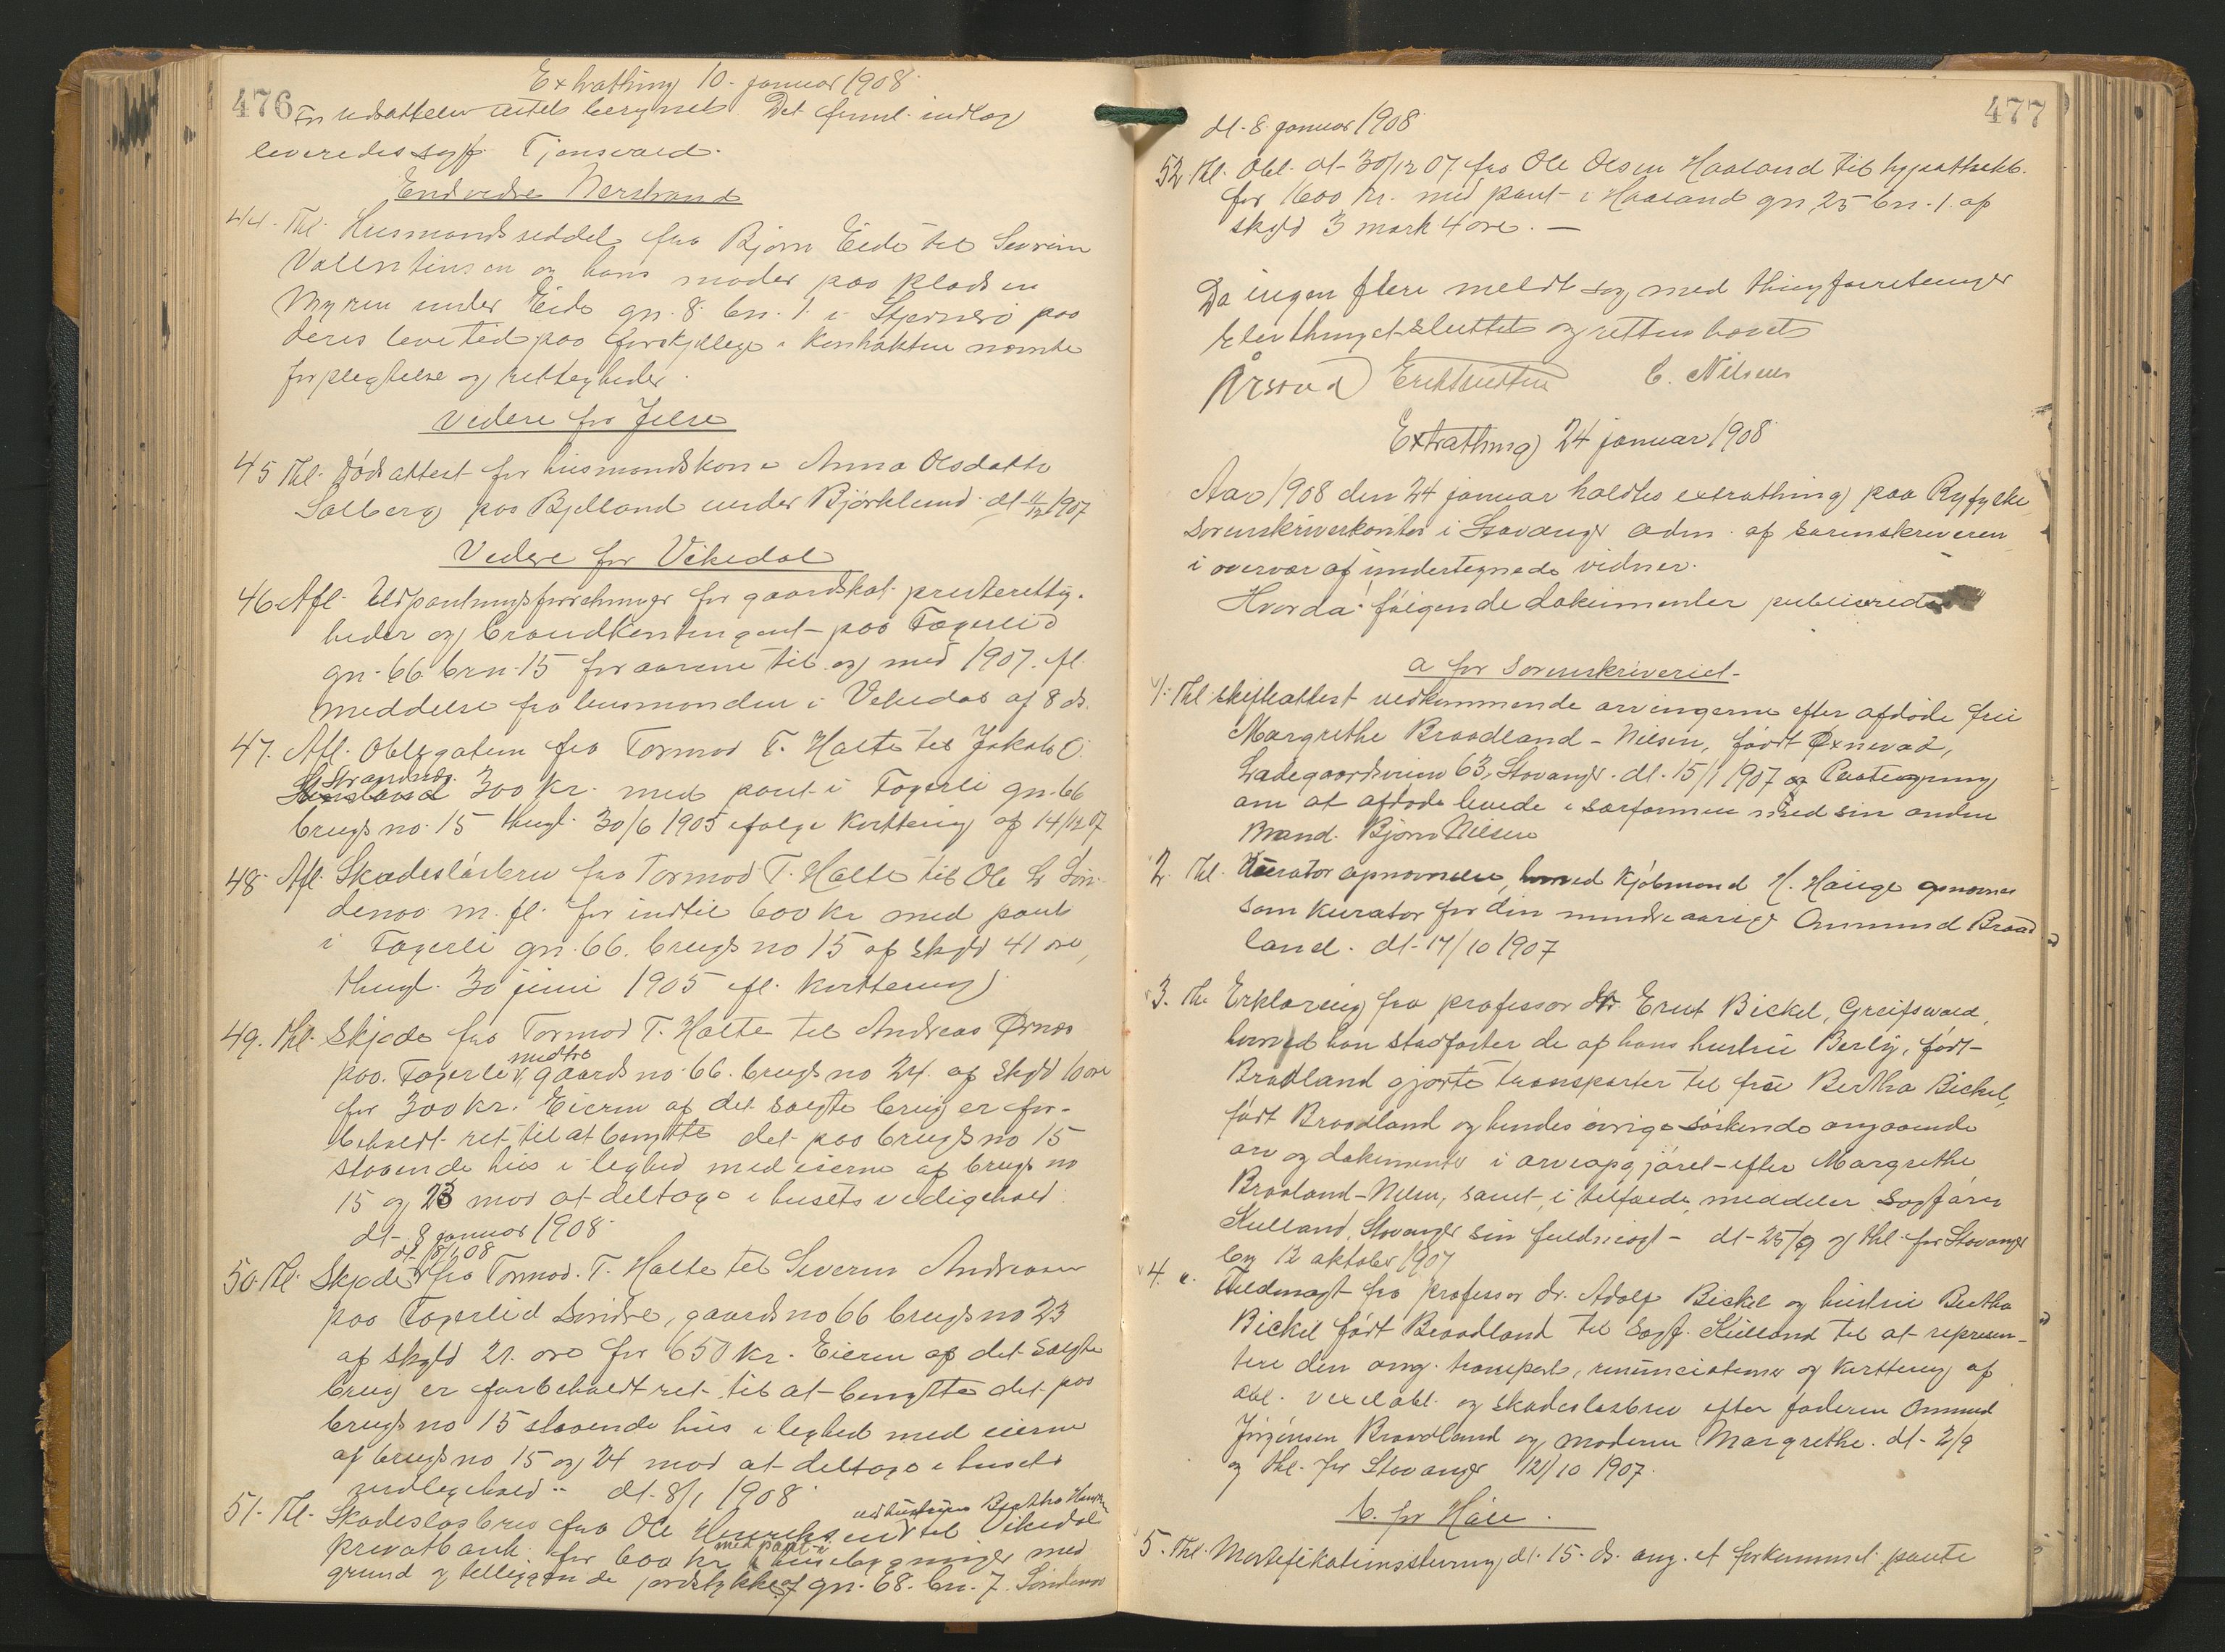 Extrathing 10. januar 1908
476 En udsættelse antet berignet Det freml. indlæg
leveredes sagf. Tjensvold.
Endvidre Nerstrand
44. Thl. Husmandsseddel fra Bjørn Eide til Severin
Valentinsen og hans moder paa pladsen
Myren under Eide gn. 8 bn. 1. i Stjernerø paa
deres levetid paa forskjellige i kontrakten nævnte
forpligtelse og rettigheder.
Videre for Jelse
45 Thl. Dødsattest for husmandskone Anna Olsdatter
Solberg paa Bjelland under Bjørklund dt 11/12 1907
Videre for Vikedal
46 Afl. Udpantningsforretninger for gaardskat presterettig-
heder og brandkontingent paa Fagerlid
gn. 66 brn. 15 for aarene til og med 1907. ifl.
meddelse fra lensmanden i Vikedal af 8 ds.
47. Afl. Obligation fra Tormod T. Halte til Jakob O.
Strandnæs 300 kr. med pant i Fagerli gn. 66
brugs no. 15 thingl. 30/6 1905 ifølge kvittering af 14/12 07
48 Afl. Skadesløsbrev fra Tormod T. Halte til Ole L Søn-
denaa m. fl. for indtil 600 kr med pant
i Fagerli gn. 66. brugs no 15 af skyld 41 øre,
thingl. 30 juni 1905 ifl. kvittering
49. Thl. Skjøde fra Tormod T. Halte til Andreas Ørnæs
paa Fagerli nedtre gaards no. 66. brugs no 24. af skyld 10 øre
for 300 kr. Eieren af det solgte brug er for-
beholdt ret til at benytte det paa brugs no 15
staaende hus i lighed med eierne af brugs no
15 og 23 mod at deltage i husets vedligehold
dt. 8 januar 1908
dt 8/1 08
50. Thl. Skjøde fra Tormod. T. Halte til Severin Andreasen
paa Fagerlid Søndre, gaards no 66 brugs no 23
af skyld 21. øre for 650 kr. Eieren af det solgte
brug er forbeholdt ret til at benytte det paa
brugs no 15 staaende hus i lighed med eierne
af brugs no 15 og 24 mod at deltage i husets
vedligehold dt. 8/1 1908
51. Thl. Skadesløsbrev fra Ole Henriksen ved hustrues Bertha til Vikedal
privatbank for 600 kr med pant i husebygninger med
grund og tilliggende jordstykke af gn. 68. bn. 7. Søndenaa
477
dt. 8. januar 1908
52. Thl. Obl. dt. 30/12 07. fra Ole Olsen Haaland til hypothekb.
for 1600 kr. med pant i Haaland gn 25 bn. 1. af
skyld 3 mark 4 øre. —
Da ingen flere meldt sig med thingforretninger
blev thinget sluttet og retten hævet
Årsvoll C. Nilsen
Extrathing 24 januar 1908
Aar 1908 den 24 januar holdtes extrathing paa Ryfylke
sorenskriverkontor i Stavanger adm. af sorenskriveren
i overvær af undertegnede vidner.
Hvorda følgende dokumenter publiserides
a for Sorenskriveriet.
1. Thl. skifteattest vedkommende arvingerne efter afdøde frue
Margrethe Braadland-Nilsen, født Øxnevad,
Ladegaardsveien 63, Stavanger. dt. 15/1 1907 og Paategning
om at afdøde levede i særformue med sin anden
Mand. Bjørn Nilsen
2. Thl. Kurator opnævnelse, hvorved kjøbmand H. Hauge opnævnes
som kurator for den mindreaarige Ommund Braad
land. dt. 17/10 1907
3. Thl. Erklæring fra professor dr. Ernst Bickel, Greifswald,
hvorved han stadfæster de af hans hustru Berly, født
Braadland gjorte transporter til frue Bertha Bickel,
født Braadland og hendes øvrige søskende angaaende
arv og dokumenter i arveopgjøret efter Margrethe
Braaland-Nilsen, samt i tilfælde, meddeler sagfører
Kielland, Stavanger sin fuldmagt dt. 25/9 og thl. for Stavanger
by 12 oktober 1907
4. " Fuldmagt fra professor dr. Adolf Bickel og hustru Bertha
Bickel født Braadland til sagf. Kielland til at represen-
tere den ang. transport, renunciationer og kvittering af
obl. vexelobl. og skadesløsbrev efter faderen Ommund
Jørgensen Braadland og moderen Margrethe. dt. 2/9
og thl. for Stavanger 12/10 1907.
b. for Høle.
5. Thl. Mortifikationsstevning dt. 15. ds. ang. et forkommet pante